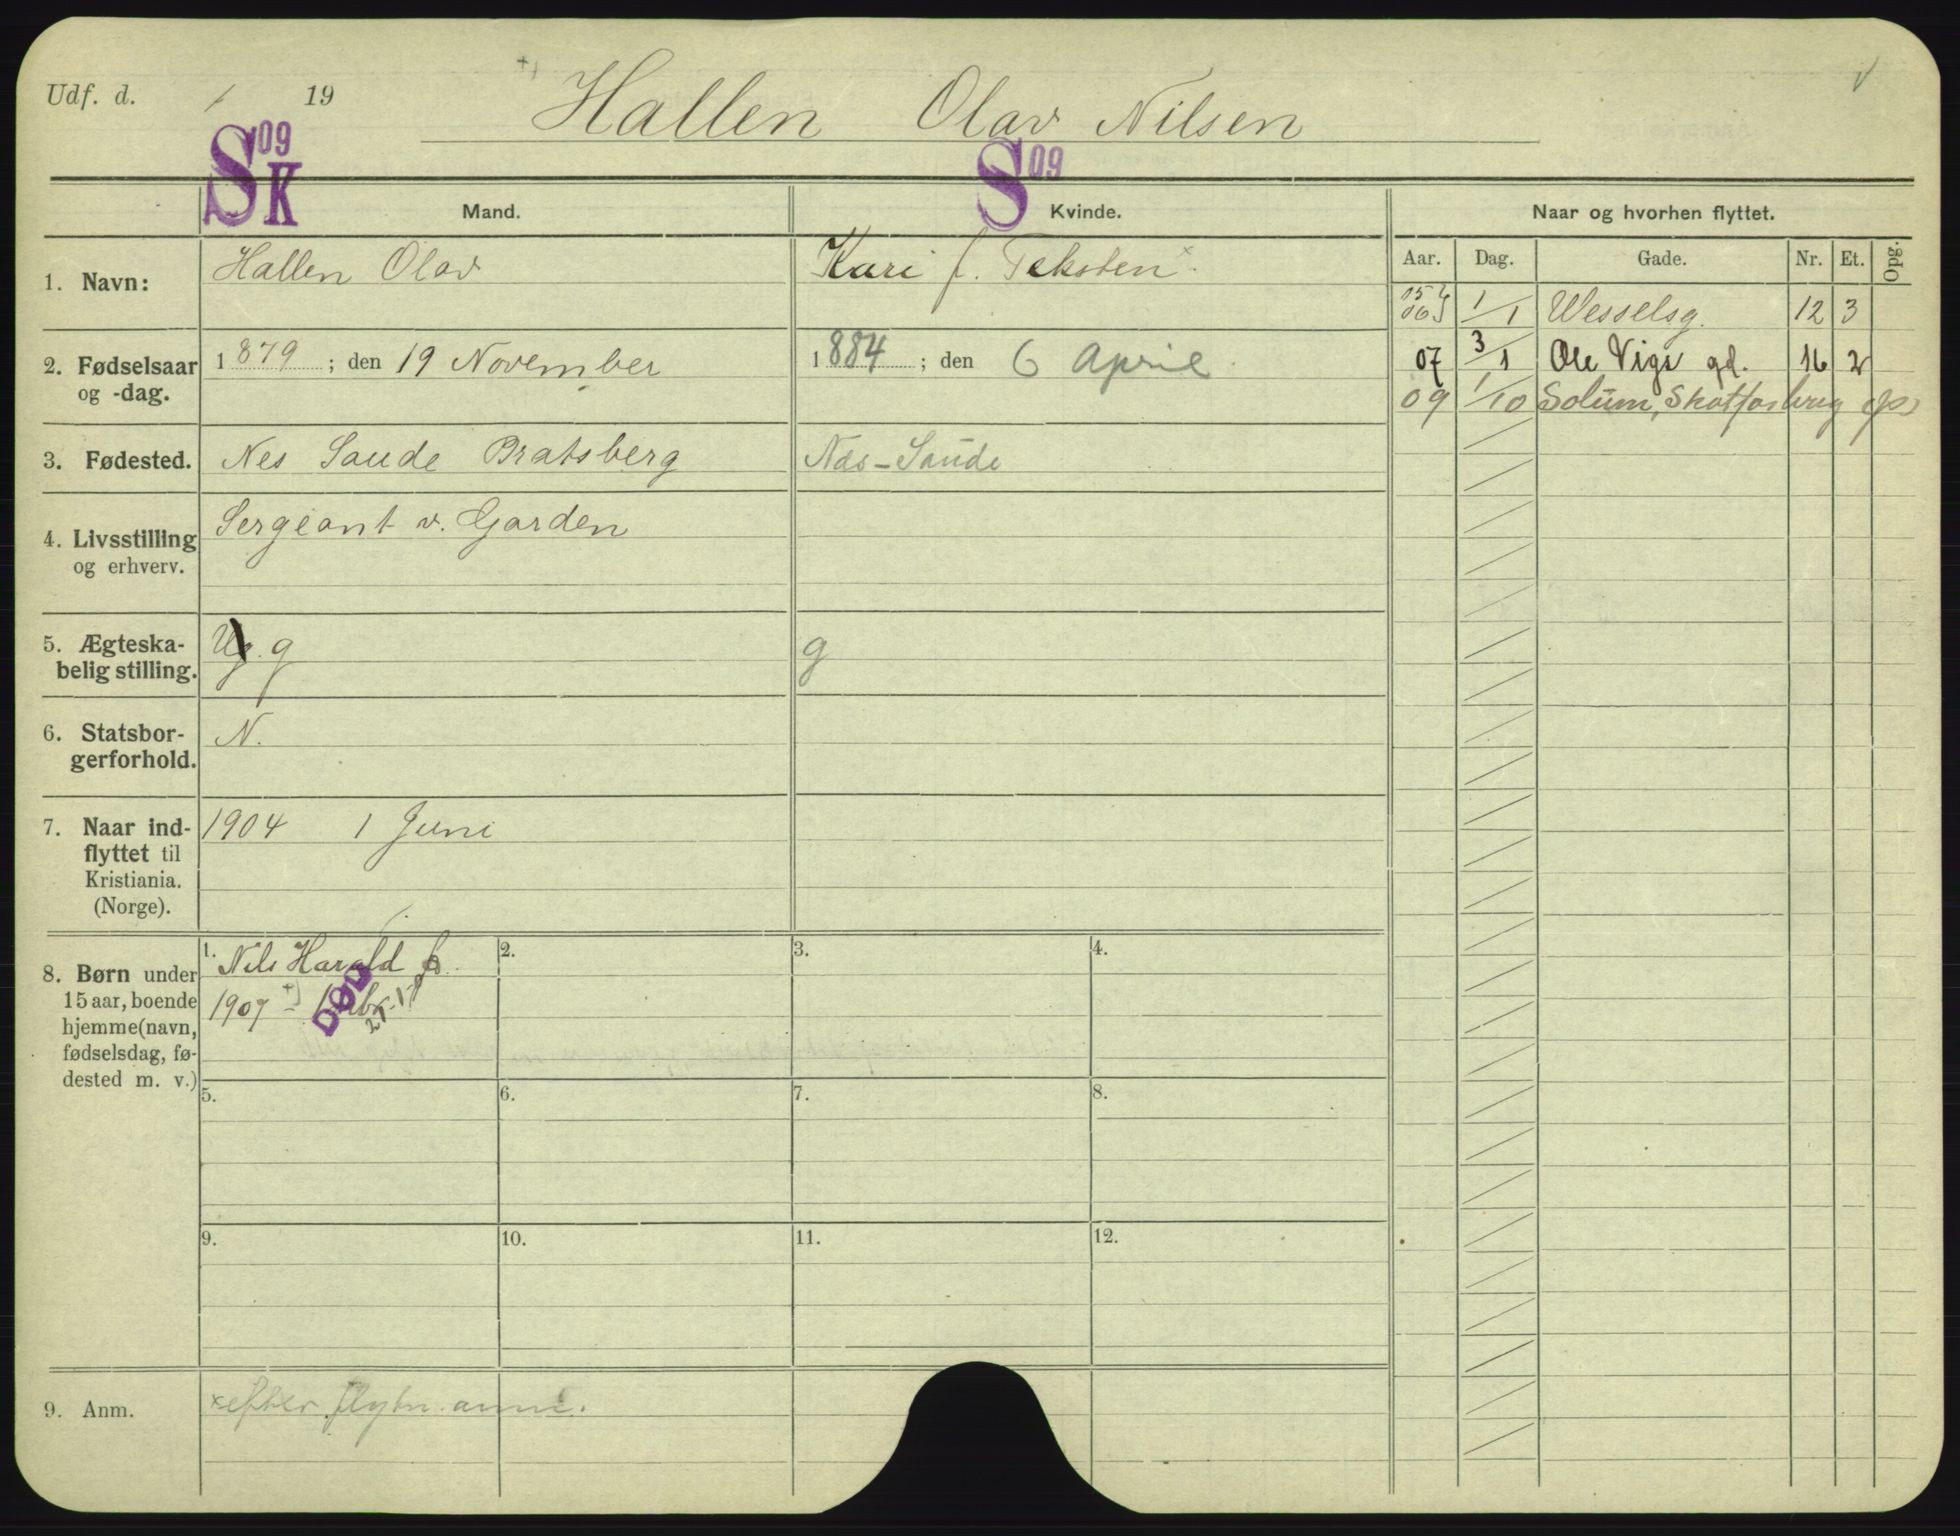 Udf. d. / 19
Hallen Olav Nilsen
S 09 K
S 09
Mand.
Kvinde.
Naar og hvorhen flyttet.
Aar. Dag. Gade. Nr. Et. Opg.
1. Navn: Hallen Olav
Kari f. Teksten x
05 06 } 1/1 Wesselsg. 12 3
2. Fødselsaar og -dag.
1879; den 19 November
1884; den 6 April
07 3/1 Ole Vigs gd. 16 2
09 1/10 Solum, Skotfosbrug
3. Fødested. Nes Saude Bratsberg
Nes-Saude
4. Livsstilling og erhverv.
Sergeant v. Garden
5. Ægteska-
belig stilling.
Ug. g
g
6. Statsbor-
gerforhold.
N.
7. Naar ind-
flyttet til
Kristiania.
(Norge).
1904 1 Juni
8. Børn under
15 aar, boende
hjemme (navn,
fødselsdag, fø-
dested m. v.)
1. Nils Harald f.
1907
DØD
2.
3.
4.
5.
6.
7.
8.
9.
10.
11.
12.
9. Anm. x efter flytn. anm.